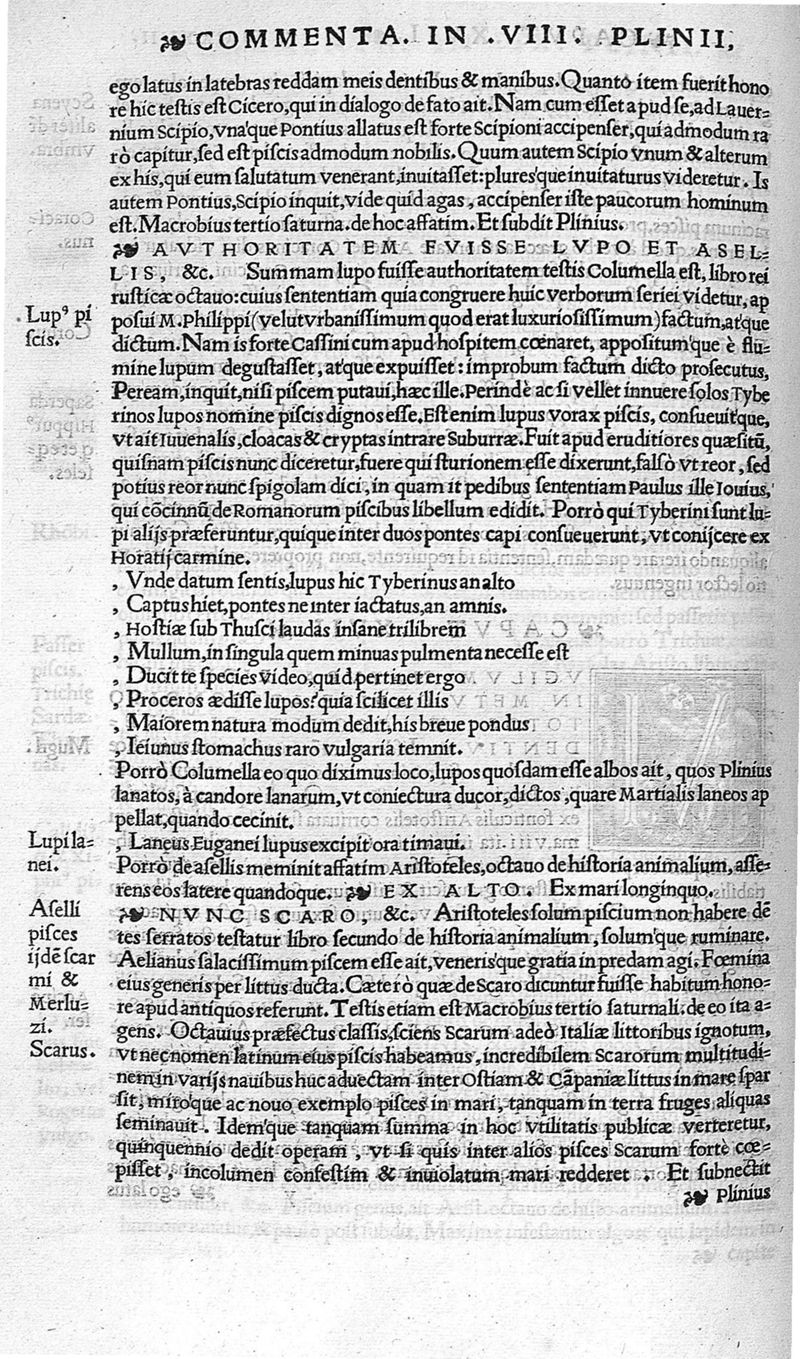 COMMENTA. IN .VIII. PLINII,
ego latus in latebras reddam meis dentibus & manibus. Quanto item fuerit hono
re hic testis est Cicero, qui in dialogo de fato ait. Nam cum esset apud se, ad Lauer-
nium Scipio, vna'que Pontius allatus est forte Scipioni accipenser, qui admodum ra
rò capitur, sed est piscis admodum nobilis. Quum autem Scipio vnum & alterum
ex his, qui eum salutatum venerant, inuitasset: plures'que inuitaturus videretur. Is
autem Pontius, Scipio inquit, vide quid agas, accipenser iste paucorum hominum
est. Macrobius tertio saturna. de hoc affatim. Et subdit Plinius.
AVTHORITATEM FVISSE LVPO ET ASEL-
LIS, &c. Summam lupo fuisse authoritatem testis Columella est, libro rei
rusticæ octauo: cuius sententiam quia congruere huic verborum seriei videtur, ap
posui M. Philippi (velut vrbanissimum quod erat luxuriosissimum) factum, at'que
dictum. Nam is forte Cassini cum apud hospitem cœnaret, appositum'que è flu-
mine lupum degustasset, at'que expuisset: improbum factum dicto prosecutus,
Peream, inquit, nisi piscem putaui, hæc ille. Perindè ac si vellet innuere solos Tybe
rinos lupos nomine piscis dignos esse. Est enim lupus vorax piscis, consueuit'que,
vt ait Iuuenalis, cloacas & cryptas intrare Suburræ. Fuit apud eruditiores quæsitū,
quisnam piscis nunc diceretur, fuere qui sturionem esse dixerunt, falsò vt reor, sed
potius reor nunc spigolam dici, in quam it pedibus sententiam Paulus ille Iouius,
qui cōcinnū de Romanorum piscibus libellum edidit. Porrò qui Tyberini sunt lu-
pi alijs præferuntur, quique inter duos pontes capi consueuerunt, vt conijcere ex
Horatij carmine.
, Vnde datum sentis, lupus hic Tyberinus an alto
, Captus hiet, pontes ne inter iactatus, an amnis.
, Hostiæ sub Thusci laudas insane trilibrem
, Mullum, in singula quem minuas pulmenta necesse est
, Ducit te species video, quid pertinet ergo
, Proceros ædisse lupos? quia scilicet illis
, Maiorem natura modum dedit, his breue pondus
, Ieiunus stomachus rarò vulgaria temnit.
Porrò Columella eo quo diximus loco, lupos quosdam esse albos ait, quos Plinius
lanatos, à candore lanarum, vt coniectura ducor, dictos, quare Martialis laneos ap
pellat, quando cecinit.
, Laneus Euganei lupus excipit ora timaui.
Porrò de asellis meminit affatim Aristoteles, octauo de historia animalium, asse-
rens eos latere quandoque. EX ALTO. Ex mari longinquo.
NVNC SCARO, &c. Aristoteles solum piscium non habere dē
tes serratos testatur libro secundo de historia animalium, solum'que ruminare.
Aelianus salacissimum piscem esse ait, veneris'que gratia in predam agi. Fœmina
eius generis per littus ducta. Cæterò quæ de Scaro dicuntur fuisse habitum hono-
re apud antiquos referunt. Testis etiam est Macrobius tertio saturnali. de eo ita a-
gens. Octauius præfectus classis, sciens Scarum adeò Italiæ littoribus ignotum,
vt nec nomen latinum eius piscis habeamus, incredibilem Scarorum multitudi-
nem in varijs nauibus huc aduectam inter Ostiam & Cāpaniæ littus in mare spar
sit, miro'que ac nouo exemplo pisces in mari, tanquam in terra fruges aliquas
seminauit. Idem'que tanquam summa in hoc vtilitatis publicæ verteretur,
quinquennio dedit operam, vt si quis inter alios pisces Scarum fortè cœ-
pisset, incolumen confestim & inuiolatum mari redderet. Et subnectit
Plinius
Lupꝰ pi
scis.
Lupi la-
nei.
Aselli
pisces
ijdē scar
mi &
Merlu-
zi.
Scarus.